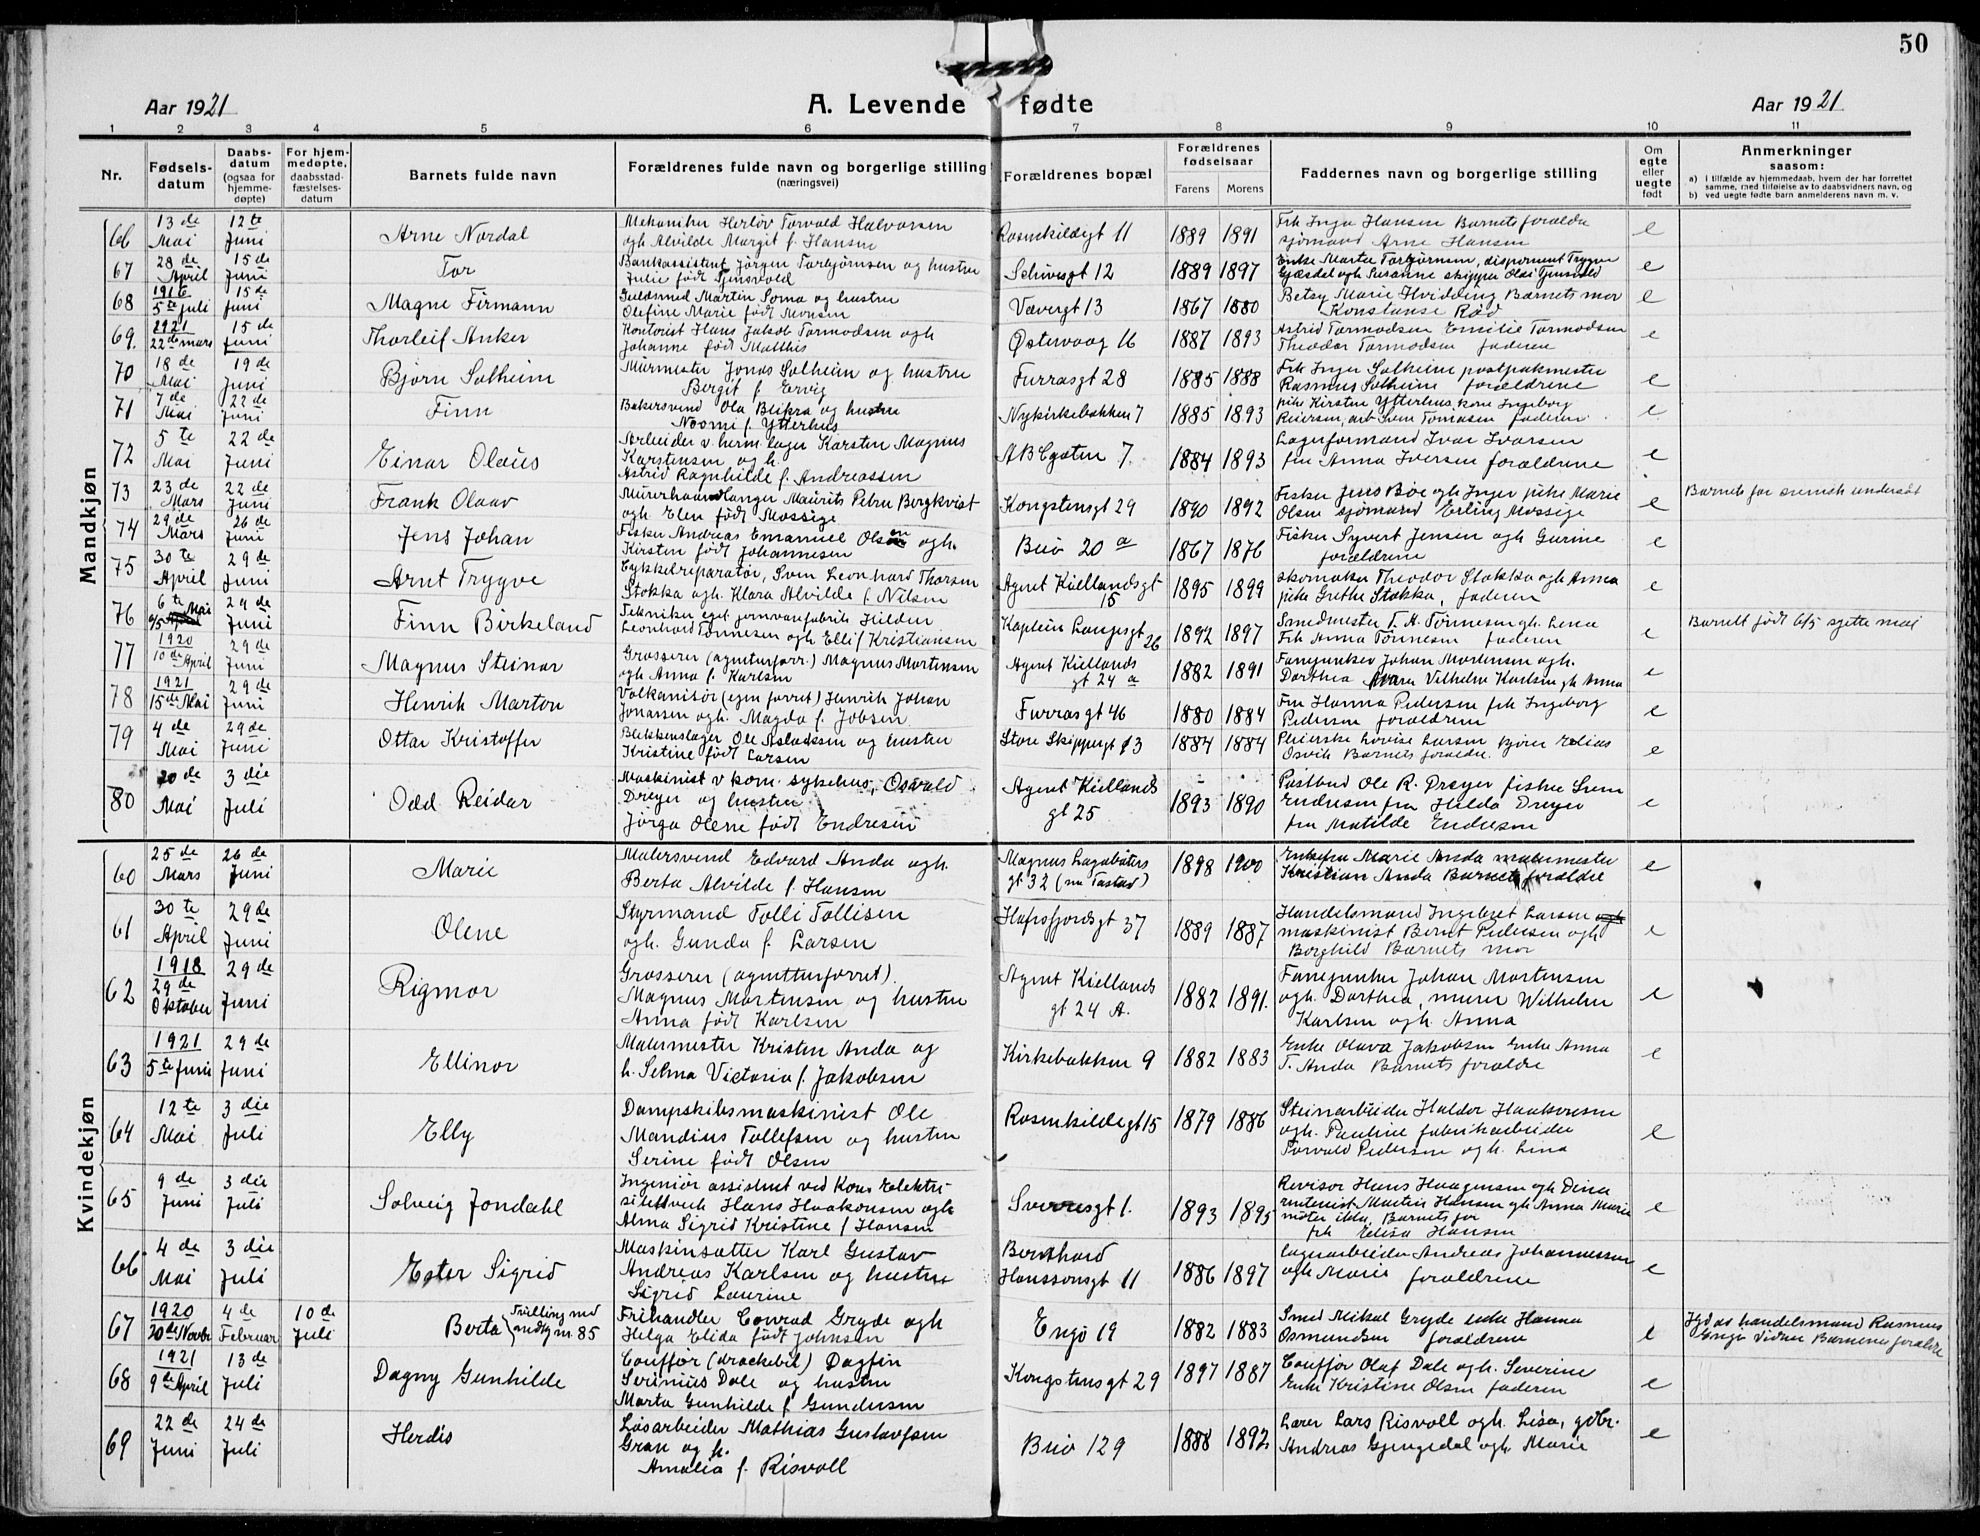 50
Aar 1921
A. Levende fødte
Aar 1921
1 2 3 4 5 6 7 8 9 10 11
Nr.
Fødsels-
datum
Daabs-
datum
(ogsaa for
hjemme-
døpte)
For hjem-
medøpte,
daabsstad-
fæstelses-
datum
Barnets fulde navn
Forældrenes fulde navn og borgerlige stilling
(næringsvei)
Forældrenes bopæl
Forældrenes
fødselsaar
Farens Morens
Faddernes navn og borgerlige stilling
Om
egte
eller
uegte
født
Anmerkninger
saasom:
a) I tilfælde av hjemmedaab, hvem der har forrettet
samme, med tilføielse av to daabsvidners navn, og
b) ved uegte fødte barn anmelderens navn m. v.
Mandkjøn
66 13de Mai 12te Juni Arne Nordal
Mekaniker Herlöv Torvald Halvorsen
ogh Alvilde Margit f. Hansen
Rosenkildegt 11 1889 1891
Frk Inga Hansen Barnets forældre
sjømand Arne Hansen
e
67 28de April 15de Juni Tor
Bankassistent Jörgen Torbjørnsen og hustru
Julie født Tjensvold
1889 1897
Enke Marte Torbjørnsen, disponent Trygve
Gjesdal ogh Susanne skipper Olai Tjensvold
e
68 1916 5te juli 15de Juni Magne Firmann
Guldsmed Martin Soma og hustru
Olefine Marie født Monsen
Vævergt 13 1867 1880
Betsy Marie Hvidding Barnets mor
Konstanse Rød
e
69. 1921 22de mars 15de Juni Thorleif Anker
Kontorist Hans Jakob Tormodsen ogh
Johanne født Matthis
Østervaag 16 1887 1893
Astrid Tormodsen Emilie Tormodsen
Theodor Tormodsen faderen
e
70 18de Mai 19de Juni Bjørn Solheim
Murmester Jonas Solheim og hustru
Bergit f. Ervig
Furrasgt 28 1885 1888
Frk Inger Solheim postpakmester
Rasmus Solheim forældrene
e
71 7de Mai 22de Juni Finn
Bakersvend Ola Blikra og hustru
Noomi f. Ytterhus
Nykirkebakken 7 1885 1893
pike Kirsten Ytterhus kone Ingeborg
Reiersen, arb Sven Tomasen faderen
e
72 5te Mai 22de Juni Einar Olaus
Arbeider v. herm. lager Karsten Magnus
Karstensen og h.
Astrid Ragnhilde f. Andreassen
ABCgaten 7. 1884 1893
Lagerformand Ivar Ivarsen
fru Anna Iversen forældrene
e
73 23de Mars 22de Juni Frank Olaav
Murerhaandlanger Maurits Petrus Bergkvist
ogh. Elen født Mossige
Kongstensgt 29 1890 1892
Fisker Jens Böe ogh Inger pike Marie
Olsen sjømand Erling Mossige
e
Barnets far svensk undersåt
74 29de Mars 26de Juni Jens Johan
Fisker Andreas Emanuel Olsen ogh.
Kirsten født Johannesen
Buø 20 a 1867 1876
Fisker Syvert Jensen ogh Gurine
forældrene
e
75 30te April 29de Juni Arnt Trygve
Cykkelreparatör, Sven Leonhard Thorsen
Stokka ogh. Klara Alvilde f. Nilsen
Agent Kiellandsgt
15
1895 1899
skomaker Theodor Stokka ogh Anna
pike Grethe Stokka, faderen
e
76 6te Mai 6/5 29de Juni Finn Birkeland
Tekniker eget jernvarefabrik Hilden
Leonhard Tönnesen ogh. Elli f Kristiansen
Kaptein Langesgt
26
1892 1897
Smedmester T. A. Tönnesen gh. Lena
Frk Anna Tönnesen faderen
e
Barnet født 6/5 sjette mai
77 1920 10de April 29de Juni Magnus Steinar
Grosserer (agenturforr.) Magnus Mortensen
ogh Anna f. Karlsen
Agent Kiellands
gt 24 a
1882 1891
Fanejunker Johan Mortensen ogh.
Dorthea Vilhelm Karlsen gh Anna
e
78 1921 15de Mai 29de Juni Henrik Marton
Vulkanisör (egen forret) Henrik Johan
Jonassen ogh. Magda f. Jobsen
Furrasgt 46 1880 1884
Fru Hanna Pedersen frk Ingeborg
Pedersen forældrene
e
79 4de Mai 29de Juni Ottar Kristoffer
Blikkenslager Ole Aslaksen og hustru
Kristine født Larsen
Store Skippergt 13 1884 1884
Pleierske Lovise Larsen Bjørn Elias
Osvik Barnets forældre.
e
80 20de Mai 3die Juli Odd Reidar
Maskinist v kom. sykehus, Osvald
Dreyer og hustru
Jörga Olene født Endresen
Agent Kiellands
gt 25
1893 1890
Postbud Ole R. Dreyer fisker Sven
Endresen fru Hilda Dreyer
fru Matilde Endresen
e
Kvindekjøn
60 25de Mars 26de Juni Marie
Malersvend Edvard Anda ogh.
Berta Alvilde f. Hansen
Magnus Lagabøters
gt 32 (nu Tastad)
1898 1900
Enkefru Marie Anda malermester
Kristian Anda Barnets forældre
e
61 30te April 29de Juni Olene
Styrmand Tolli Tollisen
ogh. Gunda f. Larsen
Hafrsfjordsgt 37 1889 1887
Handelsmand Ingebret Larsen ogh
maskinist Bernt Pedersen ogh
Borghild Barnets mor
e
62 1918 29de Oktober 29de Juni Rigmor
Grosserer (agenturforret).
Magnus Mortensen og hustru
Anna født Karlsen
Agent Kiellands
gt 24 A.
1882 1891.
Fanejunker Johan Mortensen
ogh. Dorthea, murer Wilhelm
Karlsen ogh. Anna
e
63 1921 5te Juni 29de Juni Ellinor
Malermester Kristen Anda og
h. Selma Victoria f. Jakobsen
Kirkebakken 9 1882 1883
Enke Olava Jakobsen Enke Anna
T. Anda Barnets forældre
e
64 12te Mai 3die Juli Elly
Dampskibsmaskinist Ole
Mandius Tollefsen og hustru
Serine født Olsen
Rosenkildegt 15 1879 1886
Steinarbeider Haldor Haakonsen
ogh. Pauline fabrikarbeider
Torvald Pedersen ogh. Lina
e
65 9de Juni 3die Juli Solveig Jondahl
Ingeniör assistent ved Kom Elektri-
sitetsverk Hans Haakonsen ogh
Alma Sigrid Kristine f Hansen
Sverresgt 1. 1893 1895
Revisor Hans Haagensen ogh Dina
Martin Hansen ogh Anna Marie
Barnets far
frk Elisa Hansen
e
66 4de Mai 3die Juli Ester Sigrid
Maskinsætter Karl Gustav
Andreas Karlsen og hustru
Sigrid Laurine
Bernhard
Hanssonsgt 11
1886 1897
Lagerarbeider Andreas Johannessen
ogh Marie forældrene
e
67 1920 20de Novbr 4de Februar 10de Juli Berta (Tvilling med
nedtg nr. 85
Frihandler Conrad Gryde ogh
Helga Elida født Johnsen
Engø 19 1882 1883
Smed Mikal Gryde enke Hanna
Osmundsen forældrene
e
Hjd av handelsmand Rasmus
Engø Vidner Barnenes forældre
68 1921 9de April 13de Juli Dagny Gunhilde
Couffør (drockebil) Dagfin
Serinius Dale og hustru
Marta Gunhilde f. Gundersen
Kongstensgt 29 1897 1887
Couffør Olaf Dale ogh. Severine
Enke Kristine Olsen faderen
e
69 22de Juni 24de Juli Herdis
Løsarbeider Mathias Gustavsen
Gran og h.
Amalia f. Risvoll
Buø 129 1888 1892
Lærer Lars Risvoll ogh. Lisa, gdbr.
Andreas Gjengedal ogh Marie
e